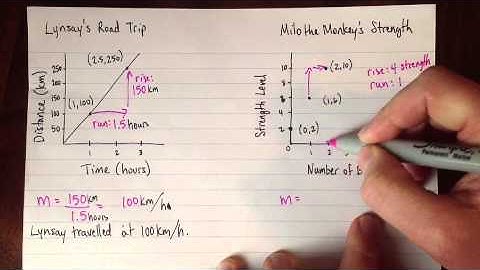 Lynsay's Road Trip
(2.5, 250)
250
200
150
100
50
(1,100)
rise:
150 km
run: 1.5 hours
Distance (km)
1 2 3
Time (hours)
m = 150km = 100 km/h.
1.5 hours
Lynsay travelled at 100 km/h.
Milo the Monkey's Strength
10
8
6
4
2
(2,10)
(1,6)
(0,2)
rise: 4 strength
run: 1
Strength Level
0 1 2
Number of
m =